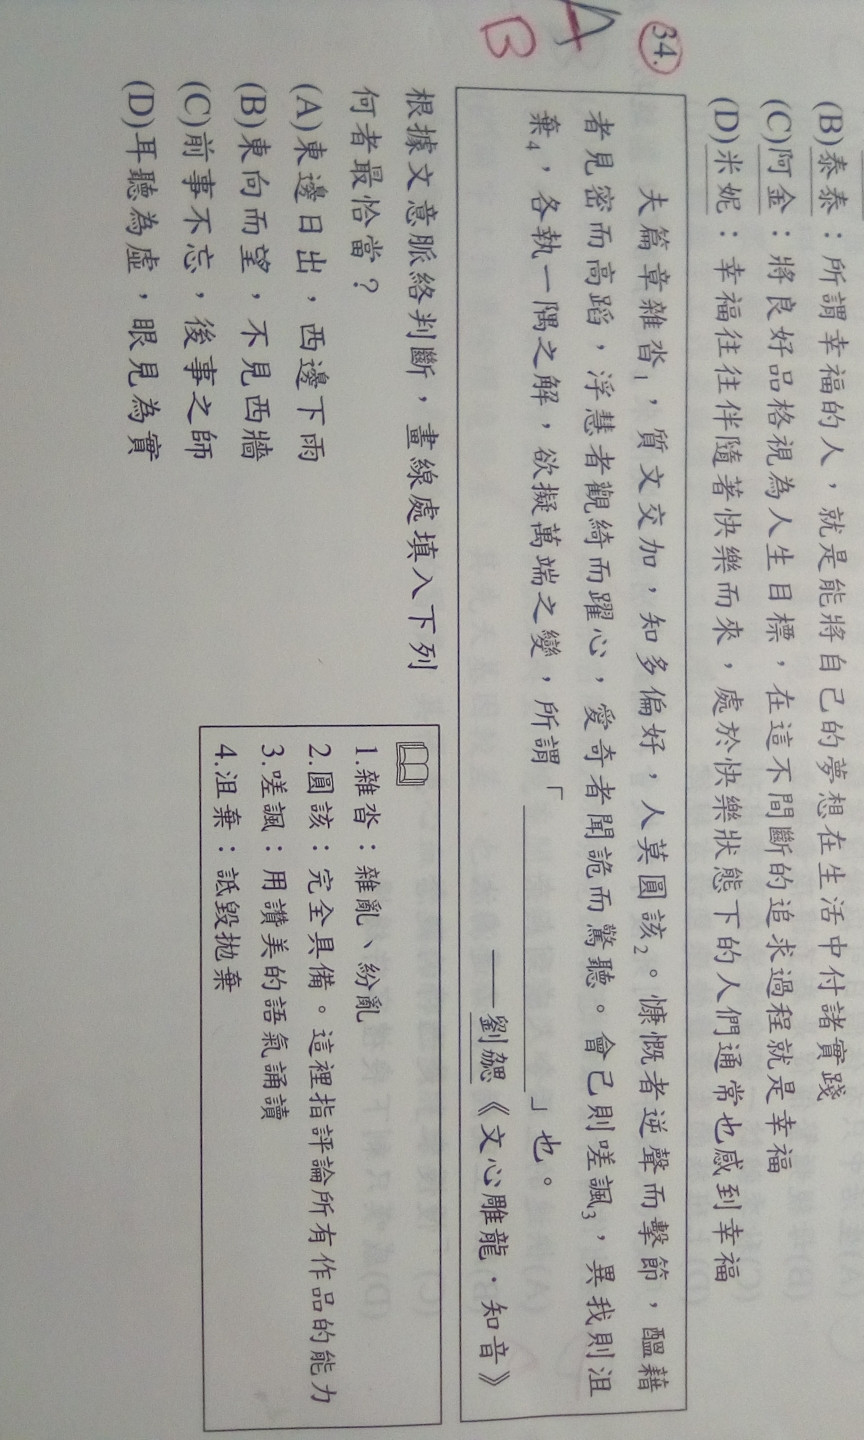 (B)泰泰：所謂幸福的人，就是能將自己的夢想在生活中付諸實踐
(C)阿金：將良好品格視為人生目標，在這不間斷的追求過程就是幸福
(D)米妮：幸福往往伴隨著快樂而來，處於快樂狀態下的人們通常也感到幸福
A
B
34.
夫篇章雜沓1，質文交加，知多偏好，人莫圓該2。慷慨者逆聲而擊節，醞藉
者見密而高蹈，浮慧者觀綺而躍心，愛奇者聞詭而驚聽。會己則嗟諷3，異我則沮
棄4，各執一隅之解，欲擬萬端之變，所謂「　　　　」也。
——劉勰《文心雕龍·知音》
根據文意脈絡判斷，畫線處填入下列
何者最恰當？
(A)東邊日出，西邊下雨
(B)東向而望，不見西牆
(C)前事不忘，後事之師
(D)耳聽為虛，眼見為實
1.雜沓：雜亂、紛亂
2.圓該：完全具備。這裡指評論所有作品的能力
3.嗟諷：用讚美的語氣誦讀
4.沮棄：詆毀拋棄